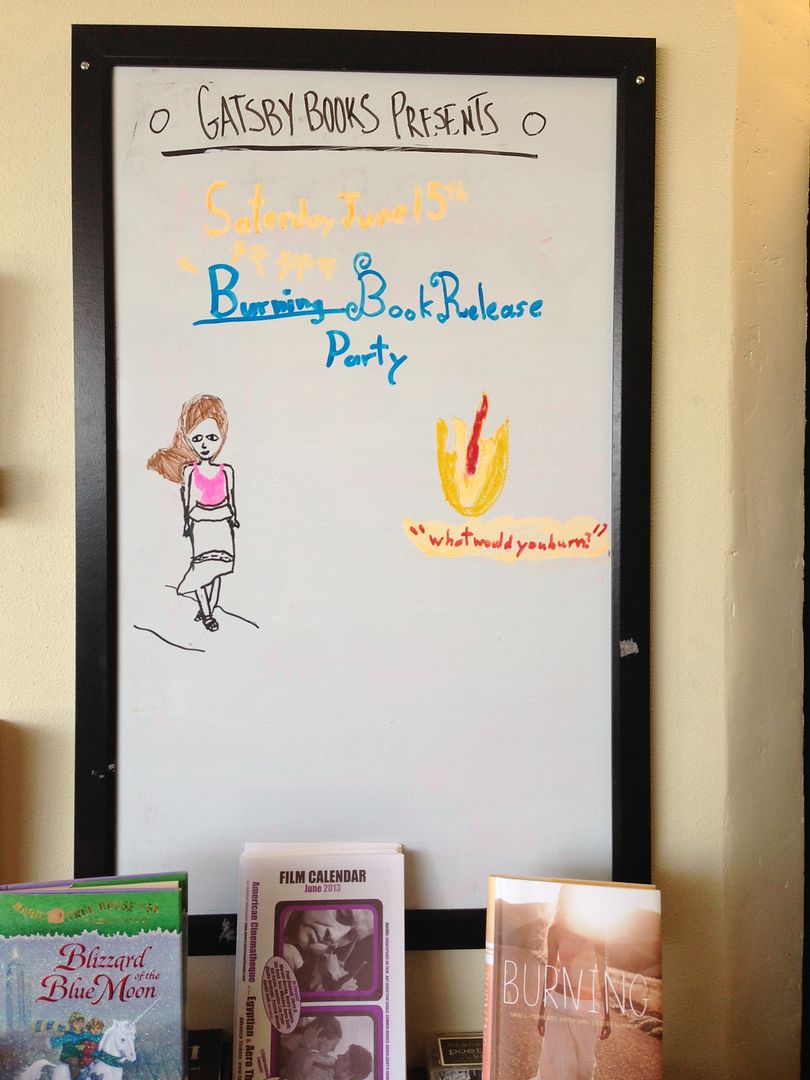 GATSBY BOOKS PRESENTS
Saterday June 15th
Burning Book Release
Party
"what would you burn?"
MAGIC TREE HOUSE #36
Blizzard
of the
Blue Moon
FILM CALENDAR
June 2013
American Cinematheque
Egyptian & Aero Th
BURNING
poe